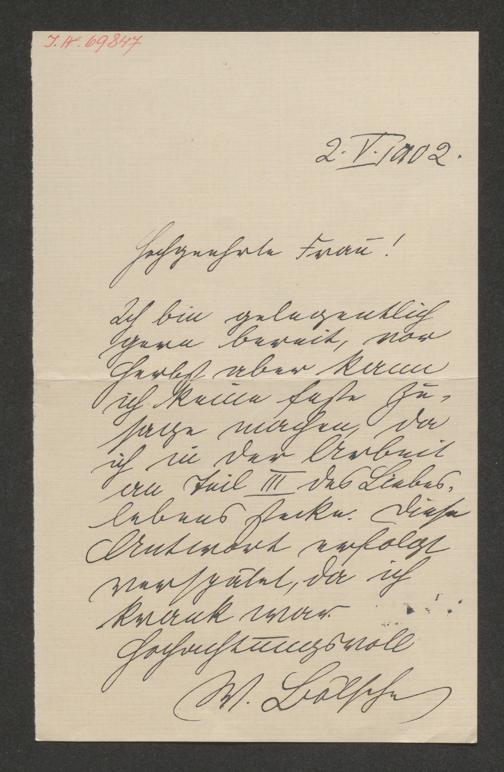 I. N. 69847
2. V. 1902.
Hochgeehrte Frau!
Ich bin gelegentlich
gern bereit, vor
Herbst aber kann
ich keine feste Zu-
sage machen, da
ich in der Arbeit
an Teil III des Liebes-
lebens stecke. Diese
Antwort erfolgt
verspätet, da ich
krank war.
Hochachtungsvoll
W. Bölsche